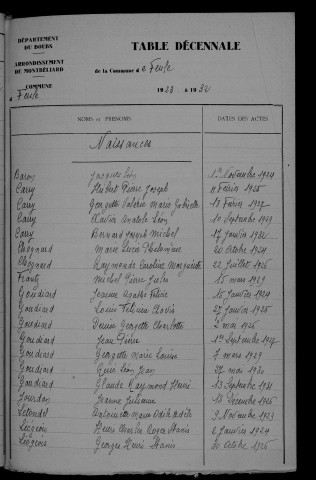 DÉPARTEMENT
DU DOUBS
ARRONDISSEMENT
DE MONTBÉLIARD
COMMUNE
d Feule
TABLE DÉCENNALE
de la Commune d e Feule
1923 à 1932
NOMS et PRÉNOMS
DATES DES ACTES
Naissances
Baron Jacques Léon 1er Novembre 1924
Carry Hubert Pierre Joseph 11 Février 1925
Carry Georgette Valérie Marie Gabrielle 18 Février 1927
Carry Clavier Anatole Léon 10 Septembre 1929
Carry Bernard Joseph Michel 17 Janvier 1932
Choynard Marie Lucie 20 Octobre 1924
Choynard Raymonde Caroline Marguerite 22 Juillet 1926
Frantz Michel Pierre Jules 15 mars 1929
Goudiard Jeanne Agathe 15 Janvier 1924
Goudiard Louis Clovis 27 Janvier 1925
Goudiard Denise Georgette Charlotte 2 mai 1926
Goudiard Jean Pierre 1er Septembre 1927
Goudiard Georgette Marie Louise 7 mars 1929
Goudiard René Léon Jean 27 mai 1930
Goudiard Claude Raymond Henri 13 Septembre 1931
Jourdon Jeanne Julienne 13 Décembre 1925
Letondel Marie Odile Adèle 9 Novembre 1923
Liégeois Henri Charles Roger Stanis 2 Janvier 1924
Liégeois Georges Henri Stanis 30 Octobre 1925